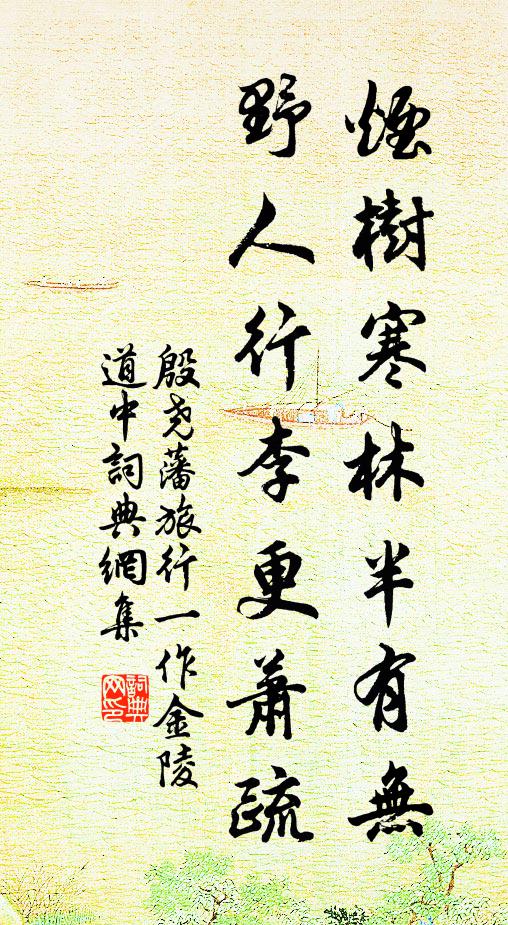 煙樹寒林半有無
野人行李更蕭疏
殷尭藩旅行一作金陵
道中詞典網集
詞典
网印